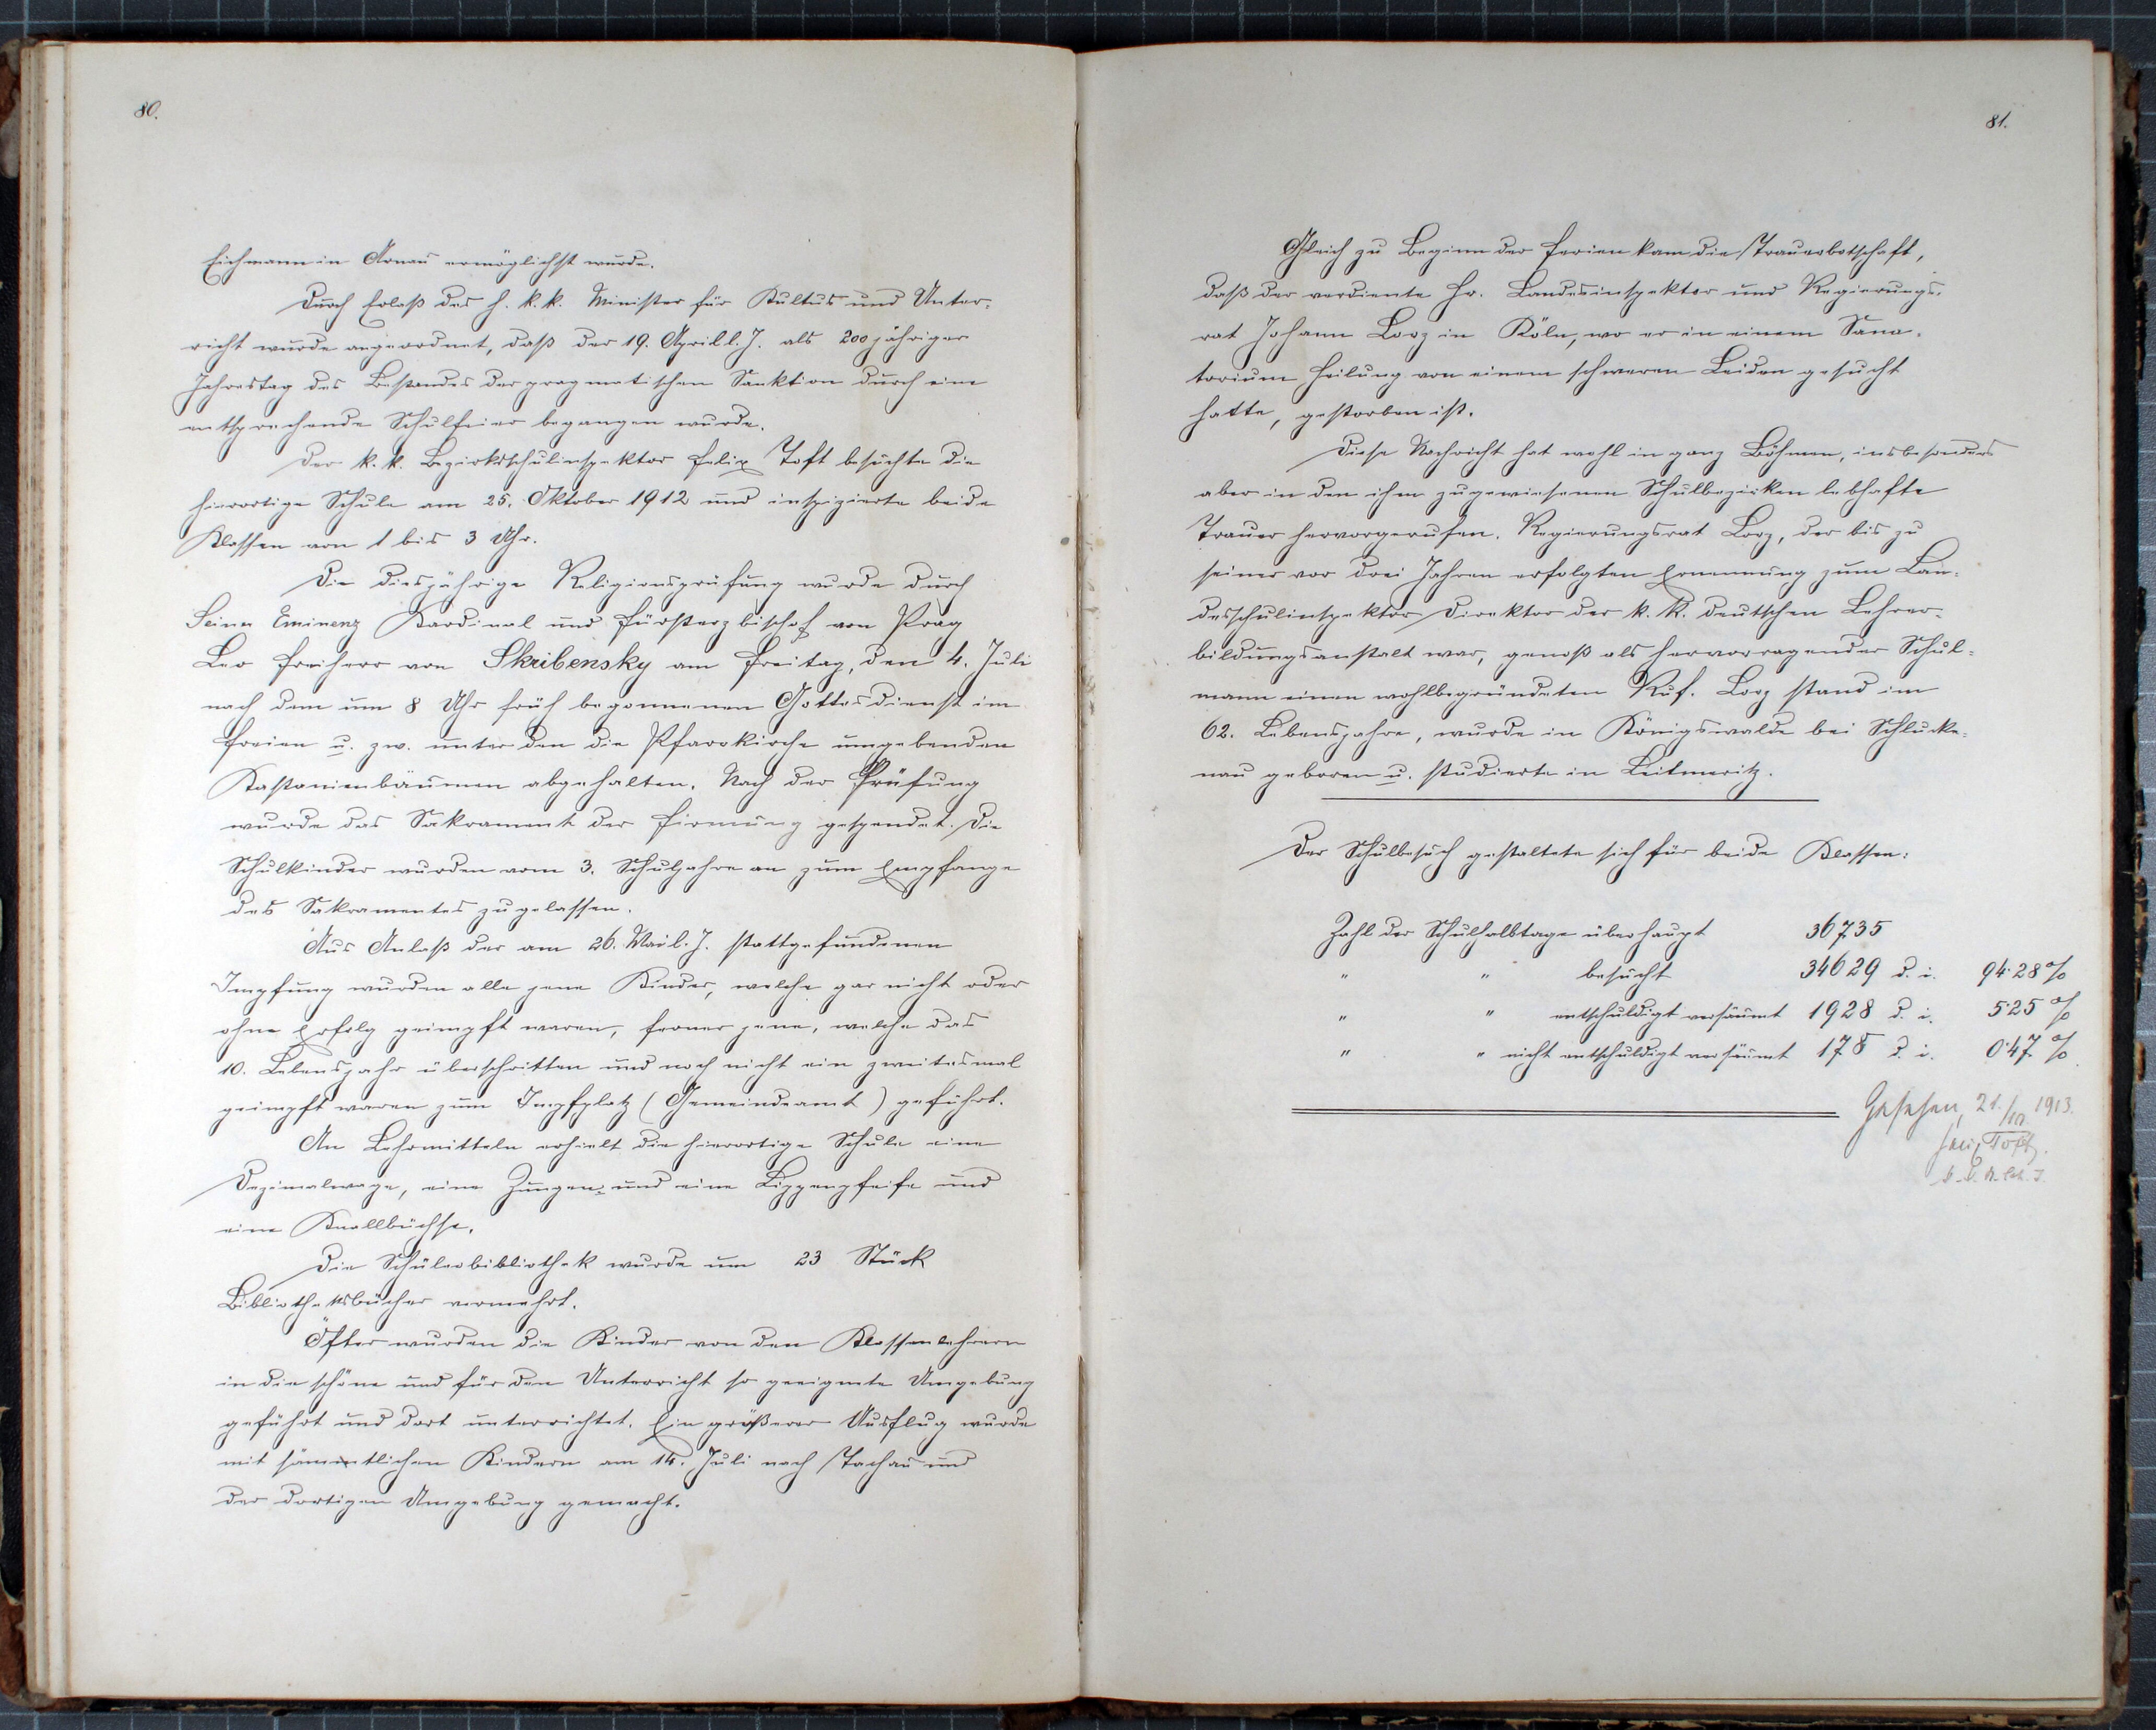 80.
Eichmann in Arnau ermöglichst wurde.
Durch Erlaß des h. k. k. Minister für Kultus und Unter-
richt wurde angeordnet, daß der 19. April l. J. als 200 jähriger
Jahrestag des Bestandes der pragmatischen Sanktion durch eine
entsprechende Schulfeier begangen wurde.
Der k. k. Bezirksschulinspektor Felix Toft besuchte die
hierortige Schule am 25. Oktober 1912 und inspizierte beide
Klassen von 1 bis 3 Uhr.
Die diesjährige Religionsprüfung wurde durch
Seine Eminenz Kardinal und Fürsterzbischof von Prag
Leo Freiherr von Skribensky am Freitag, den 4. Juli
nach dem um 8 Uhr früh begonnenen Gottesdienst im
Freien u. zw. unter den die Pfarrkirche umgebenden
Kastanienbäumen abgehalten. Nach der Prüfung
wurde das Sakrament der Firmung gespendet. Die
Schulkinder wurden vom 3. Schuljahre an zum Empfange
des Sakramentes zugelassen.
Aus Anlaß der am 26. Mai l. J. stattgefundenen
Impfung wurden alle jene Kinder, welche gar nicht oder
ohne Erfolg geimpft waren, ferner jene, welche das
10. Lebensjahr überschritten und noch nicht ein zweitesmal
geimpft waren zum Impfplatz (Gemeindeamt) geführt.
An Lehrmitteln erhielt die hierortige Schule eine
Dezimalwage, eine Zungen- und eine Lippenpfeife und
eine Knallbüchse.
Die Schülerbibliothek wurde um 23 Stück
Bibliotheksbücher vermehrt.
Öfter wurden die Kinder von den Klassenlehrern
in die schöne und für den Unterricht so geeignete Umgebung
geführt und dort unterrichtet. Ein größerer Ausflug wurde
mit sämmtlichen Kindern am 14. Juli nach Tachau und
der dortigen Umgebung gemacht.
81.
Gleich zu Beginn der Ferien kam die Trauerbotschaft,
daß der verdiente Hr. Landesinspektor und Regierungs-
rat Johann Lorz in Köln, wo er in einem Sana-
torium Heilung von einem schweren Leiden gesucht
hatte, gestorben ist.
Diese Nachricht hat wohl in ganz Böhmen, insbesonders
aber in den ihm zugewiesenen Schulbezirken lebhafte
Trauer hervorgerufen. Regierungsrat Lorz, der bis zu
seiner vor drei Jahren erfolgten Ernennung zum Lan-
desschulinspektor Direktor der k. k. deutschen Lehrer-
bildungsanstalt war, genoß als hervorragender Schul-
mann einen wohlbegründeten Ruf. Lorz stand im
62. Lebensjahre, wurde in Königswalde bei Schlucke-
nau geboren u. studierte in Leitmeritz.
Der Schulbesuch gestaltete sich für beide Klassen:
Zahl der Schulhalbtage überhaupt 36735
" " besucht 34629 d. i. 94·28%
" " entschuldigt versäumt 1928 d. i. 5·25%
" " nicht entschuldigt versäumt 178 d. i. 0·47%
Gesehen, 21./10 1913.
Felix Toft